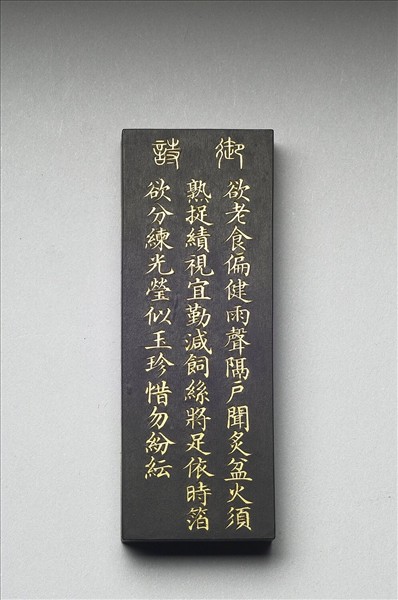 御詩
欲老食偏健雨聲隔戶聞炙盆火須
熟捉績視宜勤減飼絲將足依時箔
欲分練光瑩似玉珍惜勿紛紜